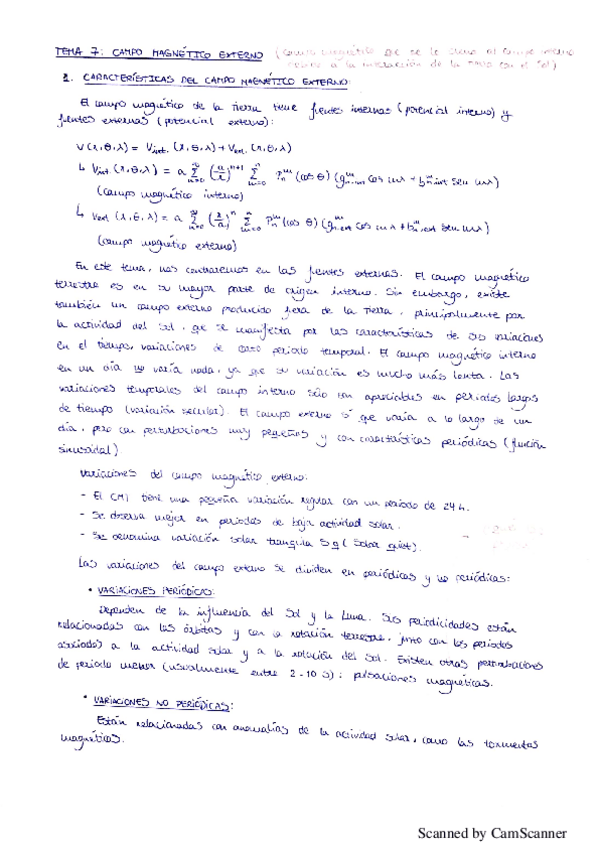 TEMA 7: CAMPO MAGNÉTICO EXTERNO (campo magnético que se le suma al campo interno
debido a la interacción de la Tierra con el Sol)
1. CARACTERÍSTICAS DEL CAMPO MAGNÉTICO EXTERNO:
El campo magnético de la tierra tiene fuentes internas (potencial interno) y
fuentes externas (potencial externo):
V(r,θ,λ) = Vint. (r,θ,λ) + Vext. (r,θ,λ)
↳ Vint. (r,θ,λ) = a Σ (a/r)^n+1 Σ Pn^m (cos θ) (g^m n·int cos mλ + h^m n·int sen mλ)
(campo magnético interno)
↳ Vext (r,θ,λ) = a Σ (r/a)^n Σ Pn^m (cos θ) (g^m n·ext cos mλ + h^m n·ext sen mλ)
(campo magnético externo)
En este tema, nos centraremos en las fuentes externas. El campo magnético
terrestre es en su mayor parte de origen interno. Sin embargo, existe
también un campo externo producido fuera de la tierra, principalmente por
la actividad del sol, que se manifiesta por las características de sus variaciones
en el tiempo, variaciones de corto periodo temporal. El campo magnético interno
en un día no varía nada, ya que su variación es mucho más lenta. Las
variaciones temporales del campo interno sólo son apreciables en periodos largos
de tiempo (variación secular). El campo externo sí que varía a lo largo de un
día, pero con perturbaciones muy pequeñas y con características periódicas (función
sinusoidal)
Variaciones del campo magnético externo:
- El CMT tiene una pequeña variación regular con un periodo de 24 h.
- Se observa mejor en periodos de baja actividad solar.
- Se denomina variación solar tranquila Sq (Solar quiet).
Las variaciones del campo externo se dividen en periódicas y no periódicas:
• VARIACIONES PERIÓDICAS:
Dependen de la influencia del Sol y la Luna. Sus periodicidades están
relacionadas con las órbitas y con la rotación terrestre, junto con los periodos
asociados a la actividad solar y a la rotación del Sol. Existen otras perturbaciones
de periodo menor (usualmente entre 2 - 10 s): pulsaciones magnéticas.
• VARIACIONES NO PERIÓDICAS:
Están relacionadas con anomalías de la actividad solar, como las tormentas
magnéticas.
Scanned by CamScanner